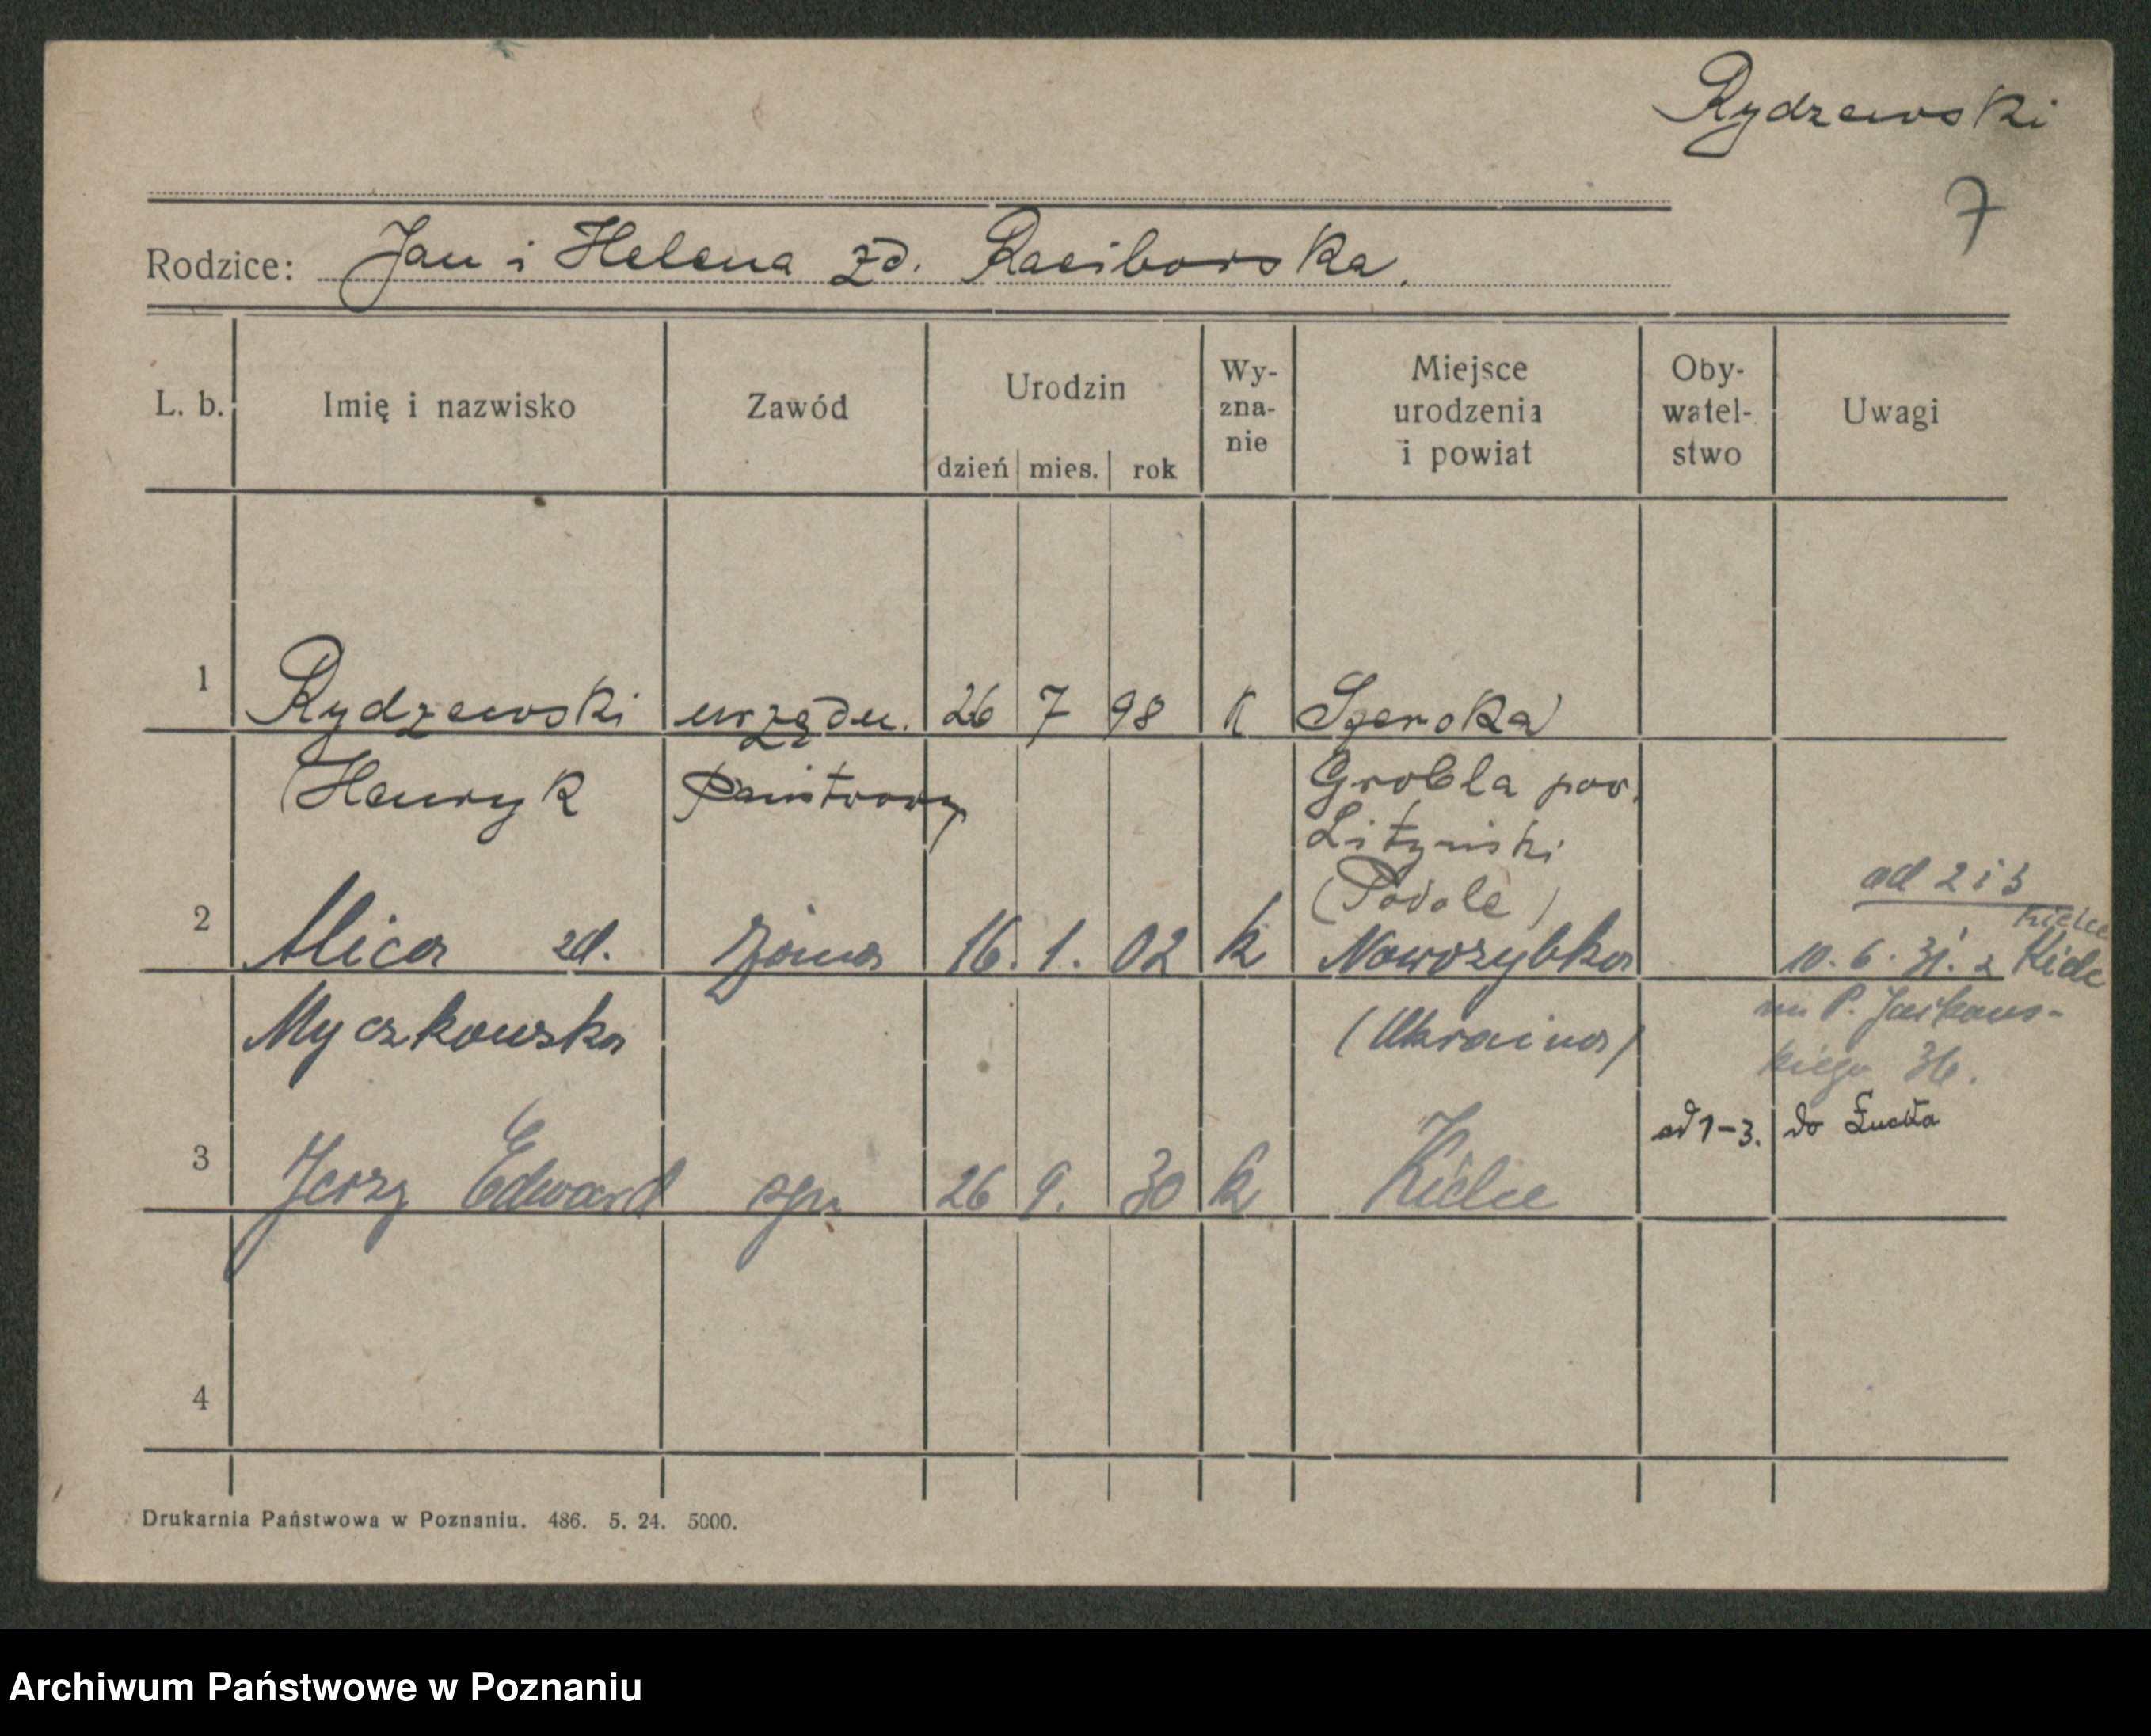 Rydzewski
7
Rodzice: Jan i Helena zd. Raciborska.
L. b. Imię i nazwisko Zawód Urodzin dzień mies. rok Wy-zna-nie Miejsce urodzenia i powiat Oby-watel-stwo Uwagi
1 Rydzewski urzędn. 26 7 98 k Szeroka
Henryk Państwowy Grobla pow.
Lityński
(Podole)
ad 2 i 3
Kielce
2 Alica zd. żona 16. 1. 02 k Nowozybka 10. 6. 31. z Kielc
Myczkowska (Ukraina)
kiego 36.
ad 1-3. do Łucka
3 Jerzy Edward syn 26 9. 30 k Kielce
4
Drukarnia Państwowa w Poznaniu. 486. 5. 24. 5000.
Archiwum Państwowe w Poznaniu